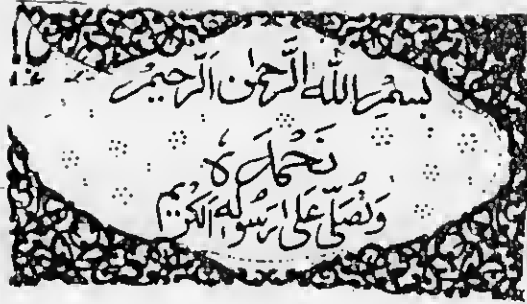 بسم الله الرحمن الرحيم
نحمده
ونصلي على رسوله الكريم